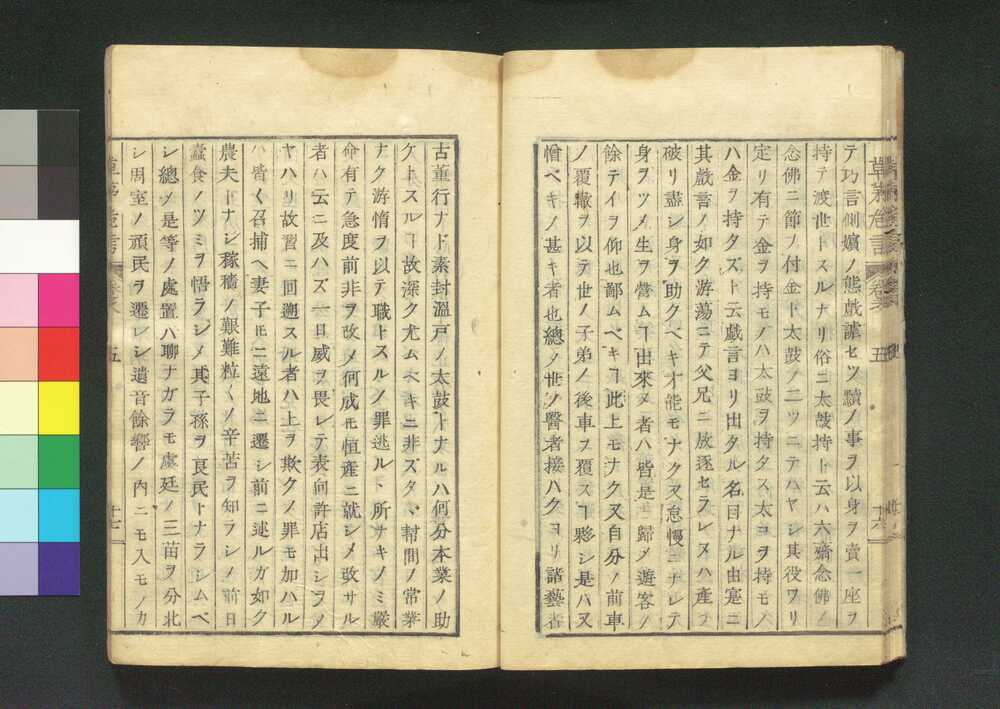 草茅危言
五
十六
テ巧言側嬪ノ態戲謔セツ黷ノ事ヲ以身ヲ賣一座ヲ
持テ渡世トスルナリ俗ニ太鼓持ト云ハ六齋念佛ノ
念佛ニ節ヲ付金ト太鼓ノ二ツニテハヤシ其役ワリ
定リ有テ金ヲ持モノハ太鼓ヲ持タス太コヲ持モノ
ハ金ヲ持タズト云戲言ヨリ出タル名目ナル由寔ニ
其戲言ノ如ク游蕩ニテ父兄ニ放逐セラレ又ハ產ヲ
破リ盡シ身ヲ助クベキ才能モナク又怠慢ニナレテ
身ヲツメ生ヲ營ムヿ出來ヌ者ハ皆是モ歸メ遊客ノ
餘テイヲ仰也鄙ムベキヿ此上モナク又自分ノ前車
ノ覆轍ヲ以テ世ノ子弟ノ後車ヲ覆スヿ夥シ是ハ又
憎ベキノ甚キ者也總メ世ノ醫者接ハクヨリ諸藝者
古董行ナド素封溫戶ノ太鼓トナルハ何分本業ノ助
ケトスルヿ故深ク尤ムベキニ非ズタヽ幇間ノ常業
ナク游惰ヲ以テ職トスルノ罪逃ルヽ所ナキノミ嚴
命有テ急度前非ヲ改メ何成モ恒產ニ就シメ改サル
者ハ云ニ及ハズ一旦威ヲ畏レテ表向許店出シヲメ
ヤハリ故習ニ回遡スル者ハ上ヲ欺クノ罪モ加ハル
ハ皆ク召捕ヘ妻子モニ遠地ニ遷シ前ニ述ルガ如ク
農夫トナシ稼穡ノ艱難粒〱ノ辛苦ヲ知ラシメ前日
蠹食ノツミヲ悟ラシメ其子孫ヲ良民トナラシムベ
シ總メ是等ノ處置ハ聊ナガラモ虞廷ノ三苗ヲ分北
シ周室ノ頑民ヲ遷レシ遺音餘響ノ內ニモ入モノカ
五
十七